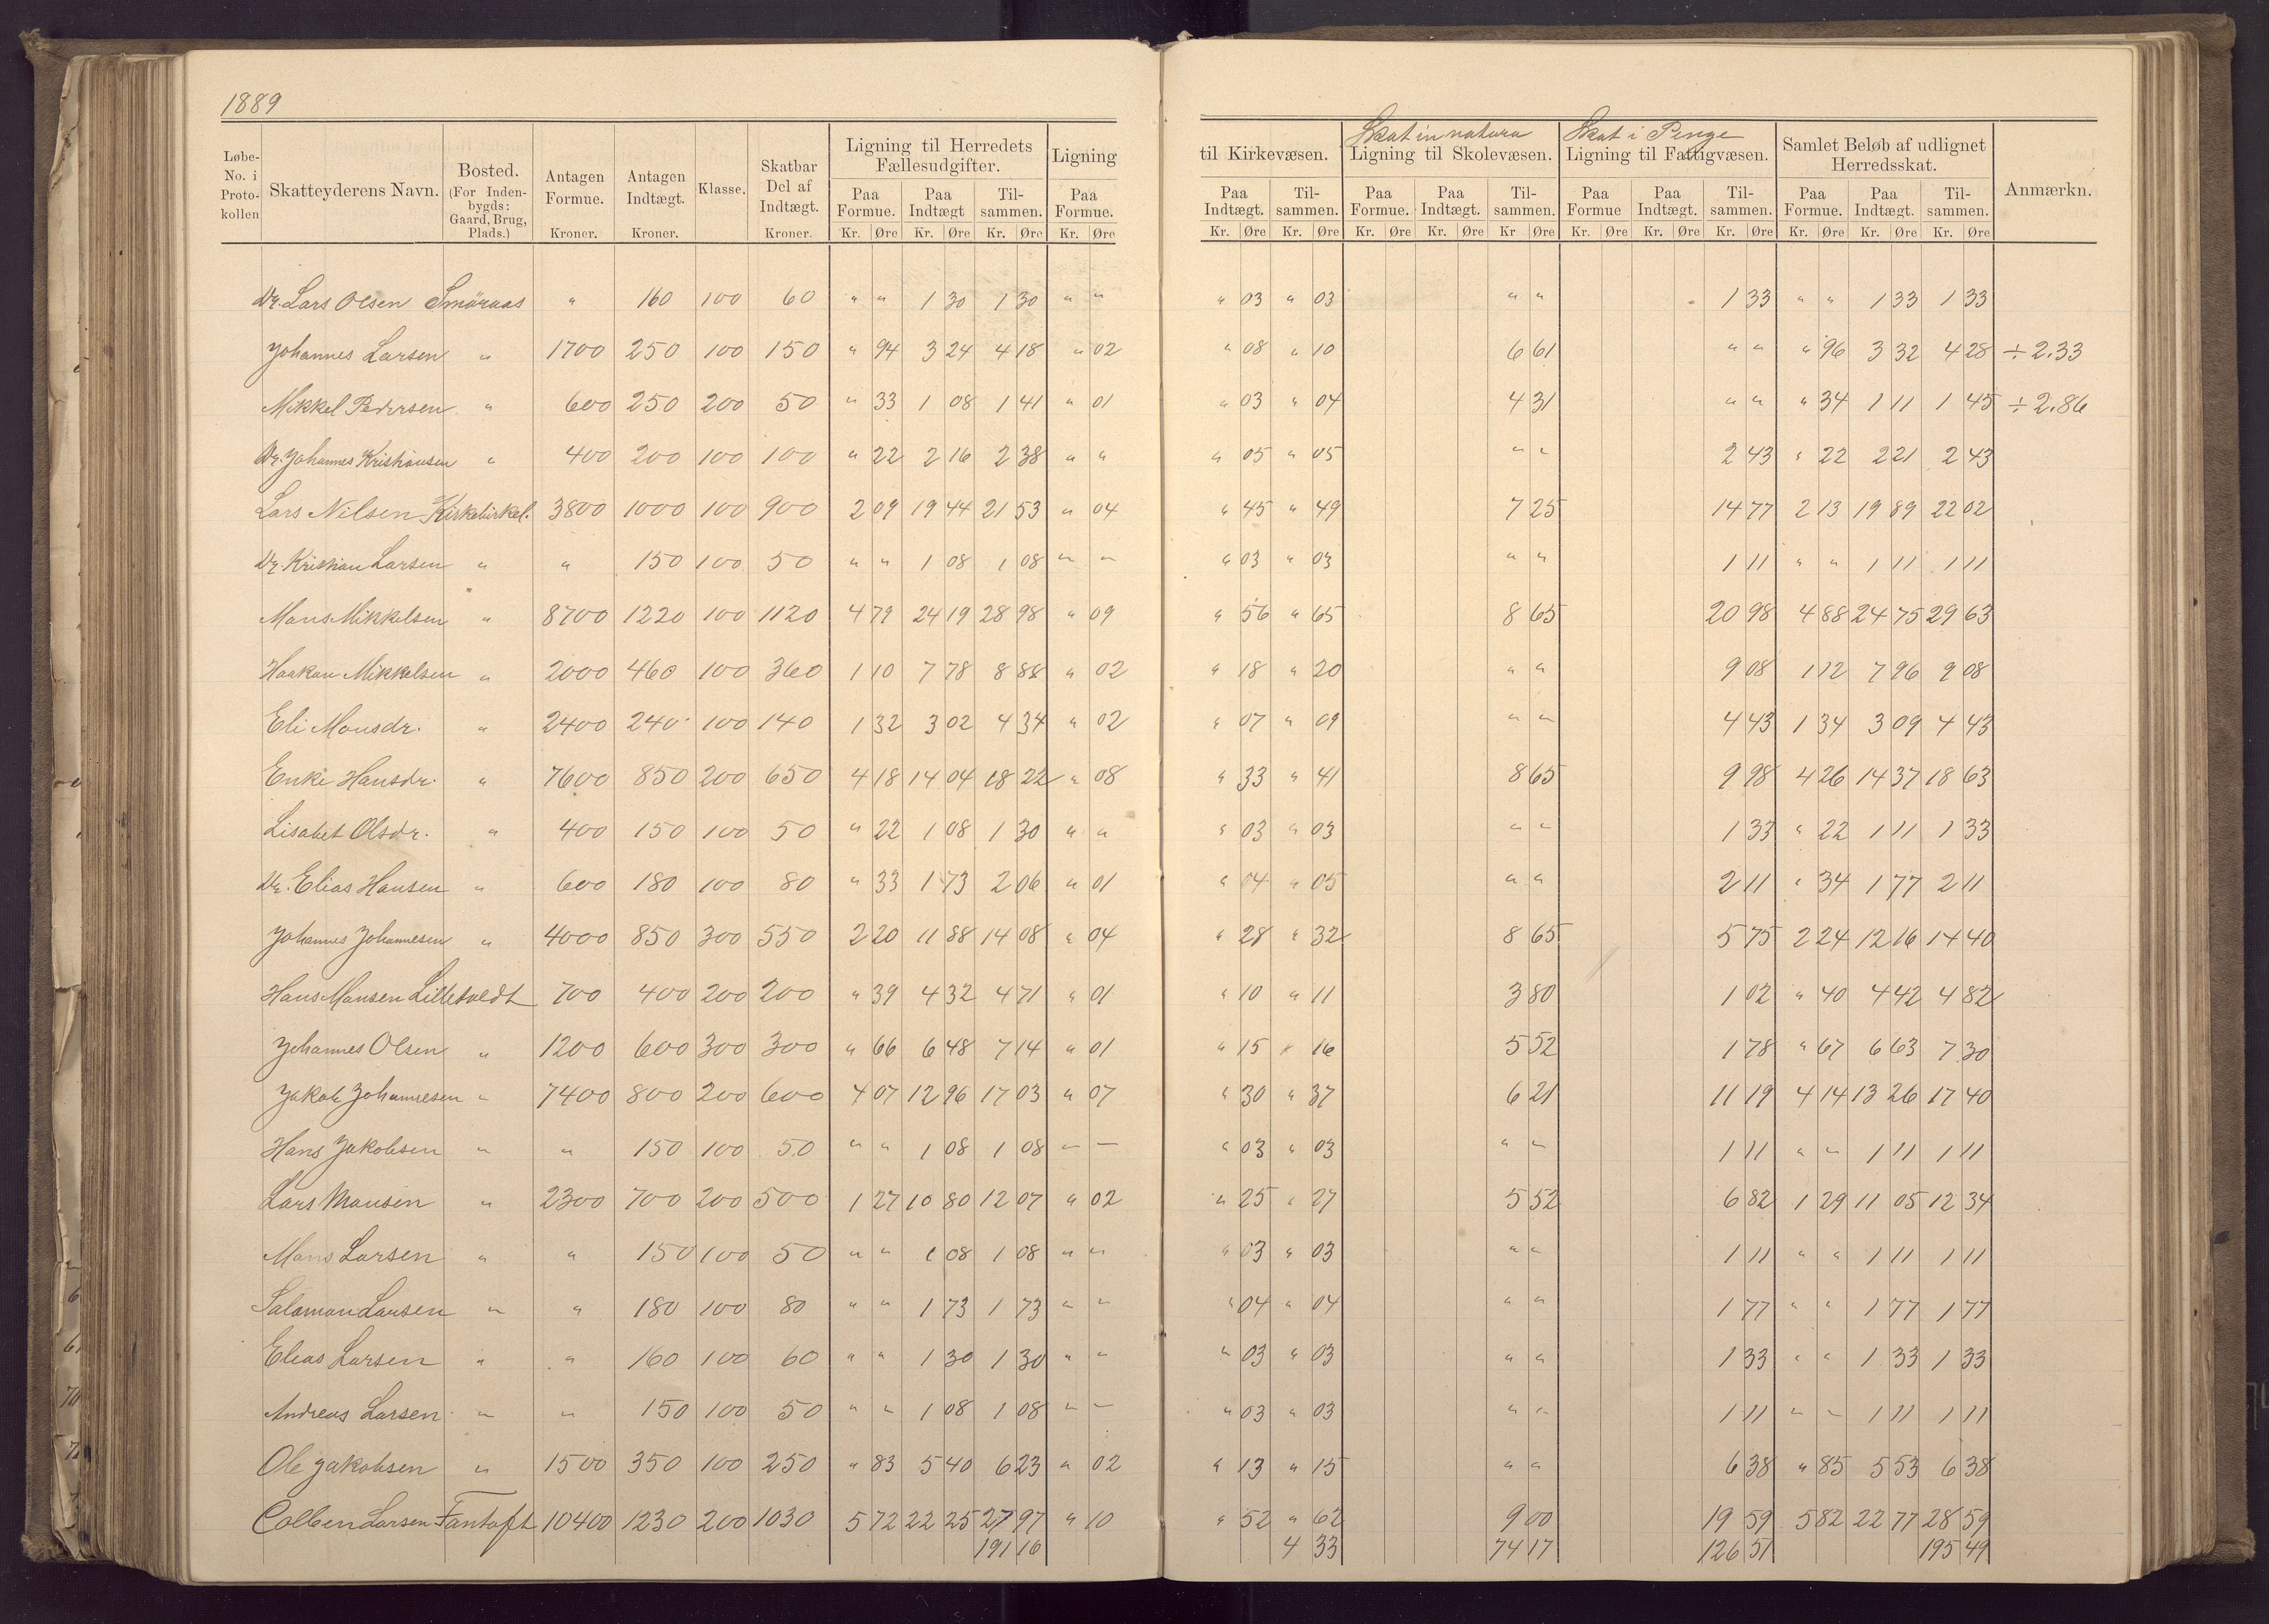 1889
Løbe-No. i Proto-kollen | Skatteyderens Navn. | Bosted. (For Inden-bygds: Gaard, Brug, Plads.) | Antagen Formue. Kroner. | Antagen Indtægt. Kroner. | Klasse. | Skatbar Del af Indtægt. Kroner. | Ligning til Herredets Fællesudgifter. Paa Formue. Kr. Øre | Paa Indtægt Kr. Øre | Til-sammen. Kr. Øre | Ligning Paa Formue. Kr. Øre | til Kirkevæsen. Paa Indtægt. Kr. Øre | Til-sammen. Kr. Øre | Skat in natura Ligning til Skolevæsen. Paa Formue. Kr. Øre | Paa Indtægt. Kr. Øre | Til-sammen. Kr Øre | Skat i Penge Ligning til Fattigvæsen. Paa Formue Kr. Øre | Paa Indtægt. Kr. Øre | Til-sammen. Kr. Øre | Samlet Beløb af udlignet Herredsskat. Paa Formue. Kr. Øre | Paa Indtægt. Kr. Øre | Til-sammen. Kr. Øre | Anmærkn.
Dr. Lars Olsen Smöraas " 160 100 60 " " 1 30 1 30 " " " 03 " 03 " " 1 33 " " 1 33 1 33
Johannes Larsen " 1700 250 100 150 " 94 3 24 4 18 " 02 " 08 " 10 6 61 " " " 96 3 32 4 28 ÷ 2.33
Mikkel Pedersen " 600 250 200 50 " 33 1 08 1 41 " 01 " 03 " 04 4 31 " " " 34 1 11 1 45 ÷ 2.86
Dr. Johannes Kristiansen " 400 200 100 100 " 22 2 16 2 38 " " " 05 " 05 " " 2 43 " 22 2 21 2 43
Lars Nilsen Kirkebirkel. 3800 1000 100 900 2 09 19 44 21 53 " 04 " 45 " 49 7 25 14 77 2 13 19 89 22 02
Dr. Kristian Larsen " " 150 100 50 " " 1 08 1 08 " " " 03 " 03 " " 1 11 " " 1 11 1 11
Mons Mikkelsen " 8700 1220 100 1120 4 79 24 19 28 98 " 09 " 56 " 65 8 65 20 98 4 88 24 75 29 63
Haakon Mikkelsen " 2000 460 100 360 1 10 7 78 8 88 " 02 " 18 " 20 " " 9 08 1 12 7 96 9 08
Eli Monsdr. " 2400 240 100 140 1 32 3 02 4 34 " 02 " 07 " 09 " " 4 43 1 34 3 09 4 43
Enke Hansdr. " 7600 850 200 650 4 18 14 04 18 22 " 08 " 33 " 41 8 65 9 98 4 26 14 37 18 63
Lisabet Olsdr. " 400 150 100 50 " 22 1 08 1 30 " " " 03 " 03 " " 1 33 " 22 1 11 1 33
Dr. Elias Hansen " 600 180 100 80 " 33 1 73 2 06 " 01 " 04 " 05 " " 2 11 " 34 1 77 2 11
Johannes Johannesen " 4000 850 300 550 2 20 11 88 14 08 " 04 " 28 " 32 8 65 5 75 2 24 12 16 14 40
Hans Monsen Lilletvedt 700 400 200 200 " 39 4 32 4 71 " 01 " 10 " 11 3 80 1 02 " 40 4 42 4 82
Johannes Olsen " 1200 600 300 300 " 66 6 48 7 14 " 01 " 15 " 16 5 52 1 78 " 67 6 63 7 30
Jakob Johannesen " 7400 800 200 600 4 07 12 96 17 03 " 07 " 30 " 37 6 21 11 19 4 14 13 26 17 40
Hans Jakobsen " " 150 100 50 " " 1 08 1 08 " " " 03 " 03 " " 1 11 " " 1 11 1 11
Lars Monsen " 2300 700 200 500 1 27 10 80 12 07 " 02 " 25 " 27 5 52 6 82 1 29 11 05 12 34
Mons Larsen " " 150 100 50 " " 1 08 1 08 " " " 03 " 03 " " 1 11 " " 1 11 1 11
Salomon Larsen " " 180 100 80 " " 1 73 1 73 " " " 04 " 04 " " 1 77 " " 1 77 1 77
Elias Larsen " " 160 100 60 " " 1 30 1 30 " " " 03 " 03 " " 1 33 " " 1 33 1 33
Andreas Larsen " " 150 100 50 " " 1 08 1 08 " " " 03 " 03 " " 1 11 " " 1 11 1 11
Ole Jakobsen " 1500 350 100 250 " 83 5 40 6 23 " 02 " 13 " 15 " " 6 38 " 85 5 53 6 38
Colben Larsen Fantoft 10400 1230 200 1030 5 72 22 25 27 97 " 10 " 52 " 62 9 00 19 59 5 82 22 77 28 59
191 16 4 33 74 17 126 51 195 49